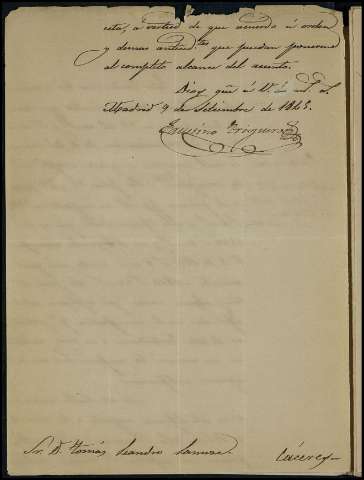 esta, a virtud de que acuerdo ú orden
y demas antecid.tes que puedan ponerme
al completo alcance del asunto.
Dios gue á V. S. ms. as.
Madrid 9 de Setiembre de 1845.
Trigueros
Sr. D. Tomás Leandro
Cáceres